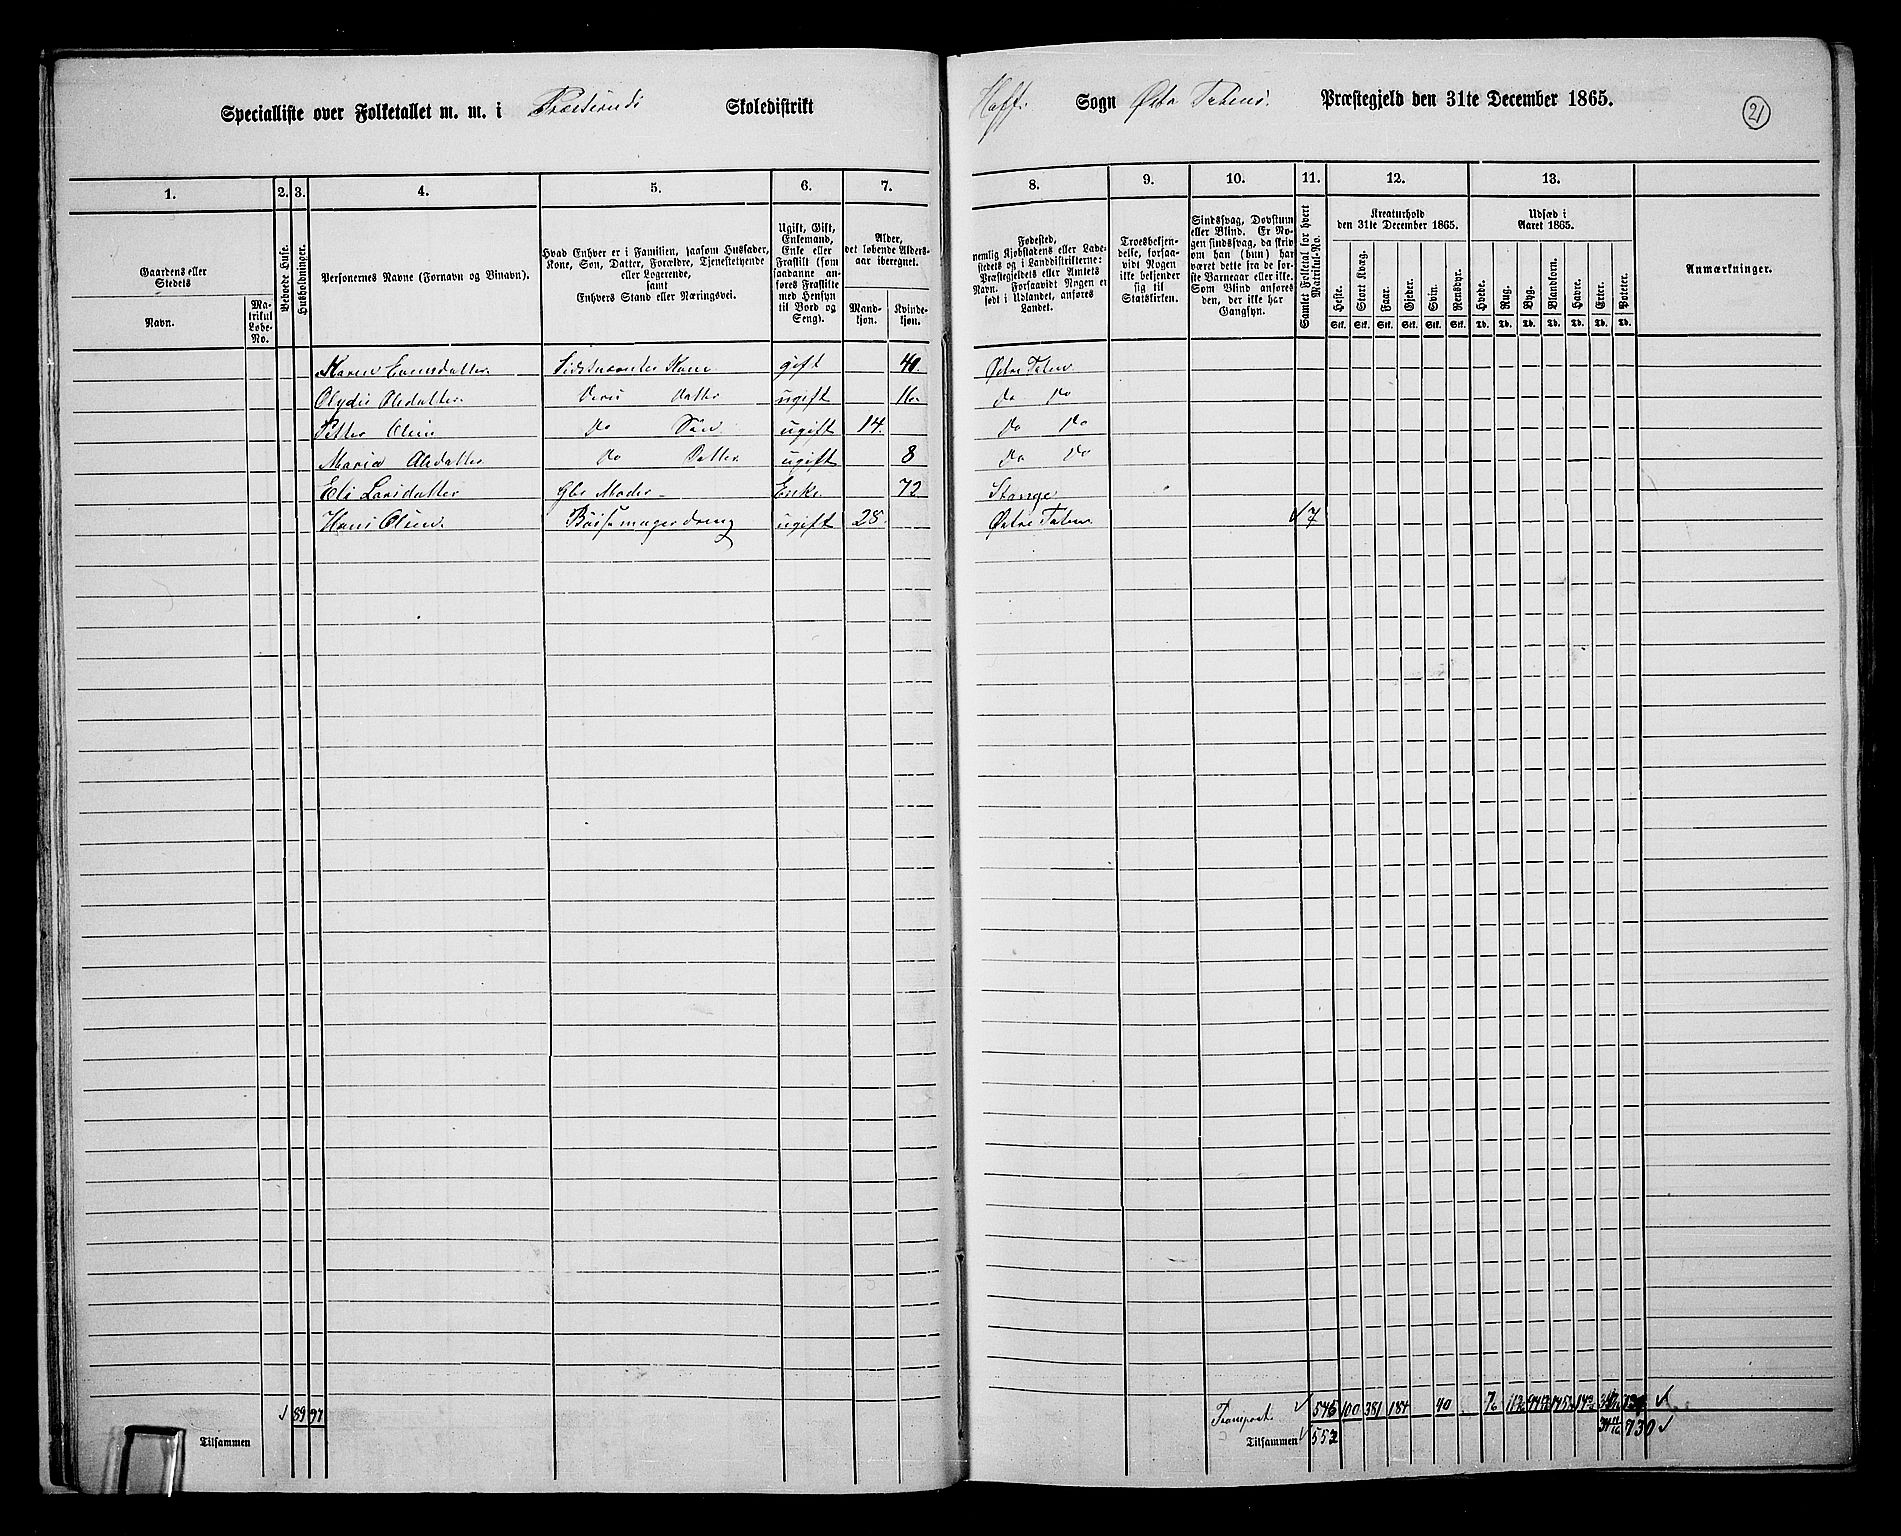 Specialliste over Folketallet m. m. i Skoledistrikt Hoff Sogn Østre Totens Præstegjeld den 31te December 1865. 21
1. 2. 3. 4. 5. 6. 7. 8. 9. 10. 11. 12. 13.
Gaardens eller Stedets
Navn.
Matrikul Løbe-No.
Beboede Huse.
Husholdninger.
Personernes Navne (Fornavn og Binavn).
Hvad Enhver er i Familien, saasom Husfader,
Kone, Søn, Datter, Forældre, Tjenestetyende
eller Logerende,
samt
Enhvers Stand eller Næringsvei.
Ugift, Gift,
Enkemand,
Enke eller
Fraskilt (som
saadanne an-
føres Fraskilte
med Hensyn
til Bord og
Seng).
Alder,
det løbende Alders-
aar iberegnet.
Mand-
kjøn.
Kvinde-
kjøn.
Fødested,
nemlig Kjøbstadens eller Lade-
stedets og i Landdistrikterne:
Præstegjeldets eller Amtets
Navn. Forsaavidt Nogen er
født i Udlandet, anføres
Landet.
Troesbekjen-
delse, forsaa-
vidt Nogen
ikke bekjender
sig til
Statskirken.
Sindssvag, Døvstum
eller Blind. Er No-
gen sindssvag, da skriv
om han (hun) har
været dette fra de før-
ste Barneaar eller ikke.
Som Blind anføres
den, der ikke har
Gangsyn.
Samlet Folketal for hvert Matrikul-No.
Kreaturhold
den 31te December 1865.
Heste. Stort Kvæg. Faar. Gjeder. Svin. Rensdyr.
Stk. Stk. Stk. Stk. Stk. Stk.
Udsæd i
Aaret 1865.
Hvede. Rug. Byg. Blandkorn. Havre. Erter. Poteter.
Td. Td. Td. Td. Td. Td. Td.
Anmærkninger.
Karen Evensdatter Sidstnævntes Kone gift 40. Østre Toten
Olsdatter. Deres Datter ugift 16. do do
Petter Olsen do Søn ugift 14. do do
Maria Olsdatter do Datter ugift 8 do do
Eli Larsdatter Gbr Moder Enke 72 Stange
Hans Olsen. Bøssemagerdreng ugift 28. Østre Toten 7
89 97 Transport 546 100 381 184 40
Tilsammen Tilsammen 552 730